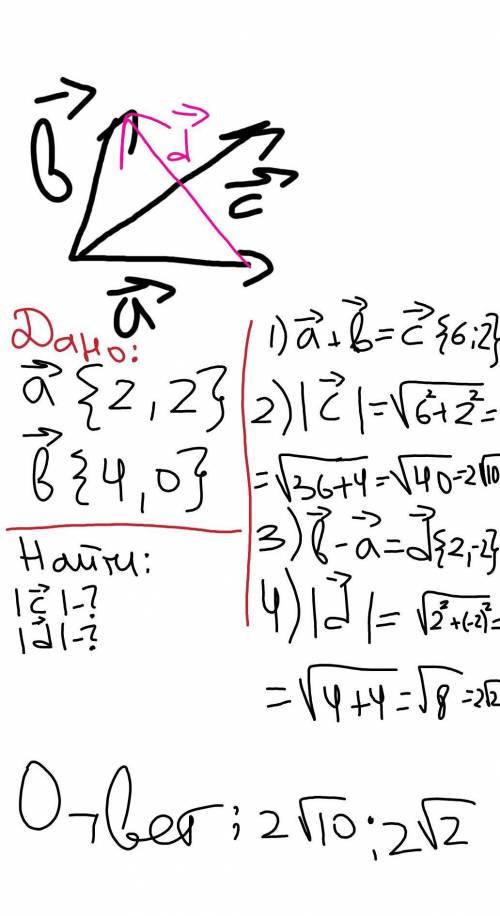 b⃗
d⃗
c⃗
a⃗
Дано:
a⃗ {2,2}
b⃗ {4,0}
Найти:
|c⃗|-?
|d⃗|-?
1) a⃗+b⃗=c⃗{6;2}
2) |c⃗|=√(6²+2²)=
=√(36+4)=√40=2√10
3) b⃗-a⃗=d⃗{2,-2}
4) |d⃗|=√(2²+(-2)²)=
=√(4+4)=√8=2√2
Ответ: 2√10; 2√2